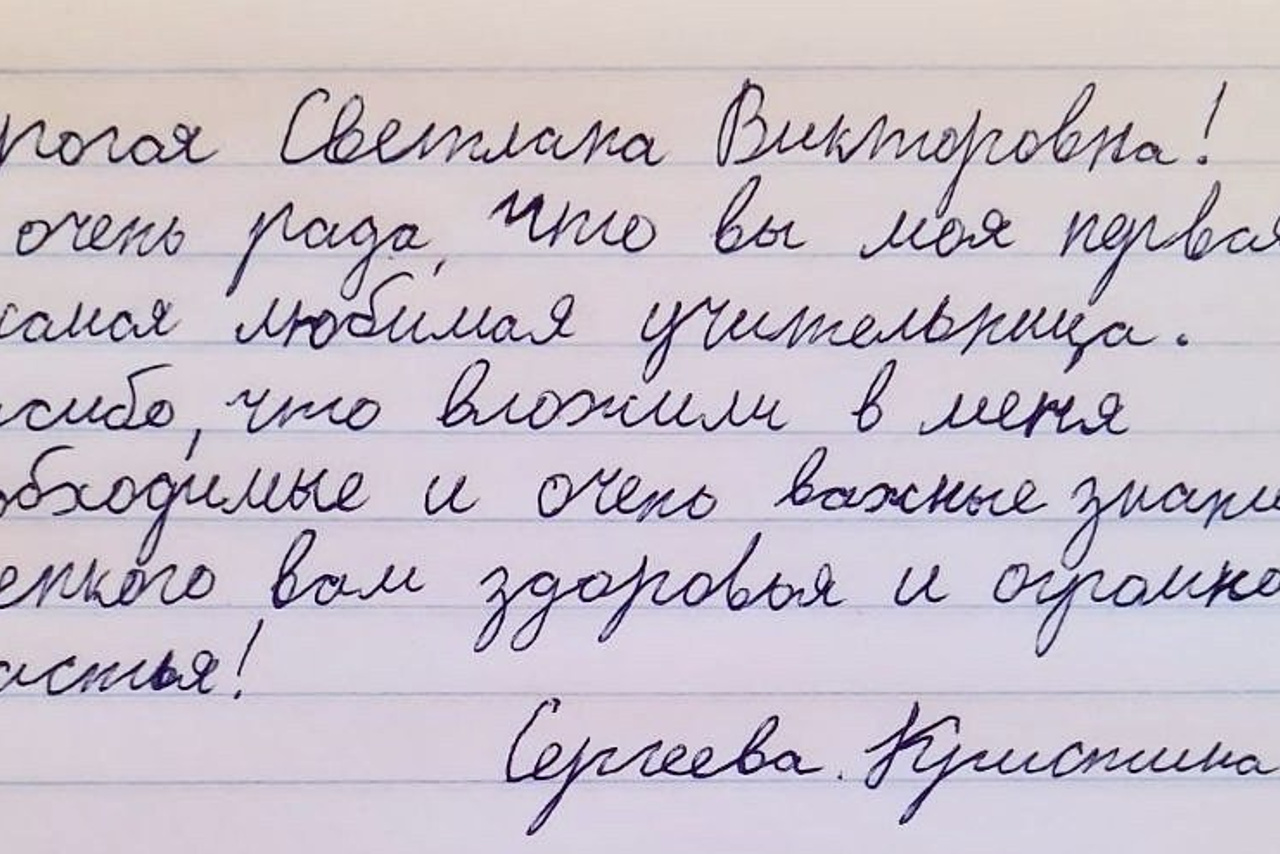 рогая Светлана Викторовна!
очень рада, что вы моя первая
самая любимая учительница.
асибо, что вложили в меня
обходимые и очень важные знани
епкого вам здоровья и огромно
астья!
Сергеева. Кристина